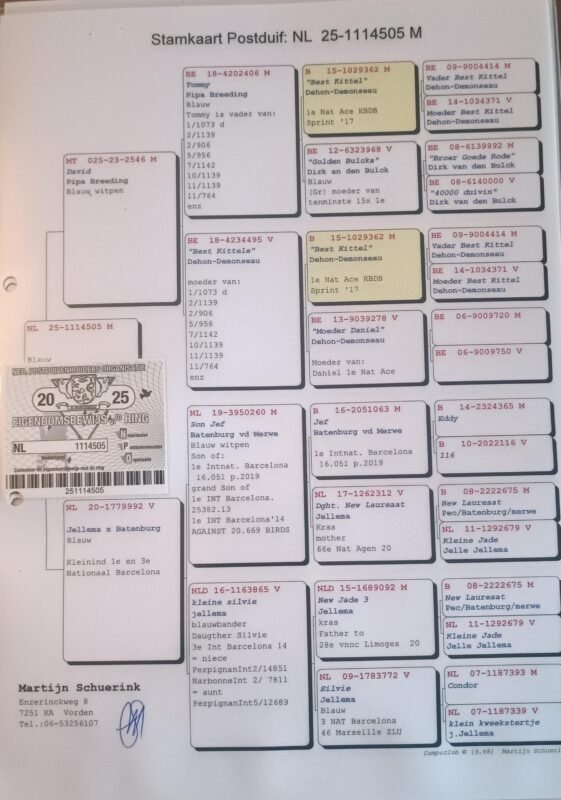 Stamkaart Postduif: NL 25-1114505 M
NL 25-1114505 M
Blauw
NED. POSTDUIVENHOUDERS ORGANISATIE
20 25
EIGENDOMSBEWIJS RING
NL 1114505
Nederland
N
P
O
Controleer dit eigendomsbewijs met de ring
251114505
MT 025-23-2546 M
David
Pipa Breeding
Blauw witpen
NL 20-1779992 V
Jellema x Batenburg
Blauw
Kleinind 1e en 3e
Nationaal Barcelona
BE 18-4202406 M
Tommy
Pipa Breeding
Blauw
Tommy is vader van:
1/1073 d
2/1139
2/906
5/956
7/1142
10/1139
11/1139
11/764
enz
BE 18-4234495 V
"Best Kittele"
Dehon-Demonseau
moeder van:
1/1073 d
2/1139
2/906
5/956
7/1142
10/1139
11/1139
11/764
enz
NL 19-3950260 M
Son Jef
Batenburg vd Merwe
Blauw witpen
Son of:
1e Intnat. Barcelona
16.051 p.2019
grand Son of
1e INT Barcelona.
25382.13
1e INT Barcelona'14
AGAINST 20.669 BIRDS
NLD 16-1163865 V
kleine silvie
jellema
blauwbander
Daugther Silvie
3e Int Barcelona 14
= niece
PerpignanInt2/14851
NarbonneInt 2/ 7811
= aunt
PerpignanInt5/12689
B 15-1029362 M
"Best Kittel"
Dehon-Demonseau
1e Nat Ace KBDB
Sprint '17
BE 12-6323968 V
"Golden Bulcks"
Dirk an den Bulck
Blauw
(Gr) moeder van
tenminste 15x 1e
B 15-1029362 M
"Best Kittel"
Dehon-Demonseau
1e Nat Ace KBDB
Sprint '17
BE 13-9039278 V
"Moeder Daniel"
Dehon-Demonseau
Moeder van:
Daniel 1e Nat Ace
B 16-2051063 M
Jef
Batenburg vd Merwe
1e Intnat. Barcelona
16.051 p.2019
NL 17-1262312 V
Dght. New Laureaat
Jellema
Kras
mother
66e Nat Agen 20
NLD 15-1689092 M
New Jade 3
Jellema
kras
Father to
28e vnnc Limoges 20
NL 09-1783772 V
Silvie
Jellema
Blauw
3 NAT Barcelona
46 Marseille ZLU
BE 09-9004414 M
Vader Best Kittel
Dehon-Demonseau
BE 14-1034371 V
Moeder Best Kittel
Dehon-Demonseau
BE 08-6139992 M
"Broer Goede Rode"
Dirk van den Bulck
BE 08-6140000 V
"40000 duivin"
Dirk van den Bulck
BE 09-9004414 M
Vader Best Kittel
Dehon-Demonseau
BE 14-1034371 V
Moeder Best Kittel
Dehon-Demonseau
BE 06-9009720 M
BE 06-9009750 V
B 14-2324365 M
Eddy
B 10-2022116 V
116
B 08-2222675 M
New Laureaat
Pec/Batenburg/merwe
NL 11-1292679 V
Kleine Jade
Jelle Jellema
B 08-2222675 M
New Laureaat
Pec/Batenburg/merwe
NL 11-1292679 V
Kleine Jade
Jelle Jellema
NL 07-1187393 M
Condor
NL 07-1187339 V
klein kweekstertje
j.Jellema
Martijn Schuerink
Enzerinckweg 8
7251 KA Vorden
Tel.:06-53256107
Compuclub © [9.48] Martijn Schuerin